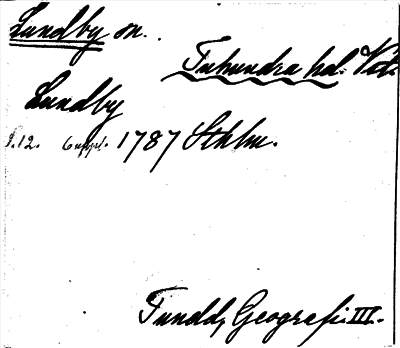 Lundby sn.
Tuhundra hd. Vstm.
Lundby
S.12. 6 uppl. 1787 Sthlm.
Tuneld, Geografi III.